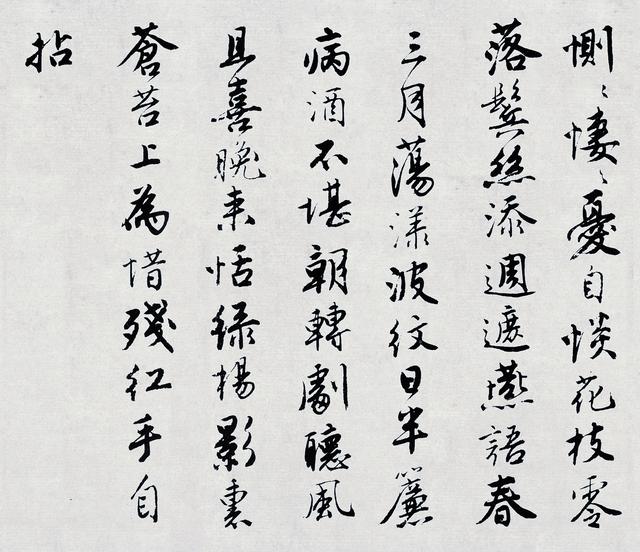 惻〻悽〻憂自惔花枝零
落鬢絲添週遮語春
三月蕩漾波紋日半簾
病酒不堪朝轉劇聽風
且喜晚来恬緑楊影裏
蒼苔上為惜殘紅手自
拈